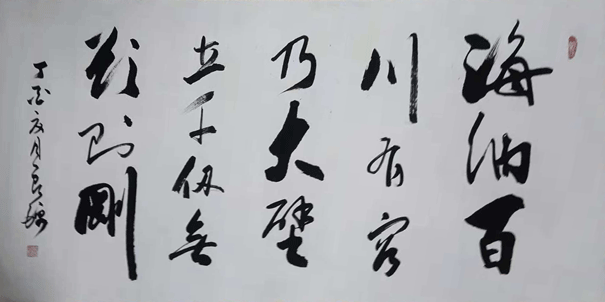 海納百
川有容
乃大壁
立千仞無
欲則剛
丁酉夏月